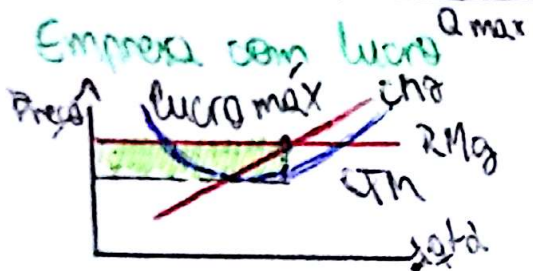 Qmax
Empresa com lucro
Preço lucro máx CMg
RMg
CTM
qtd